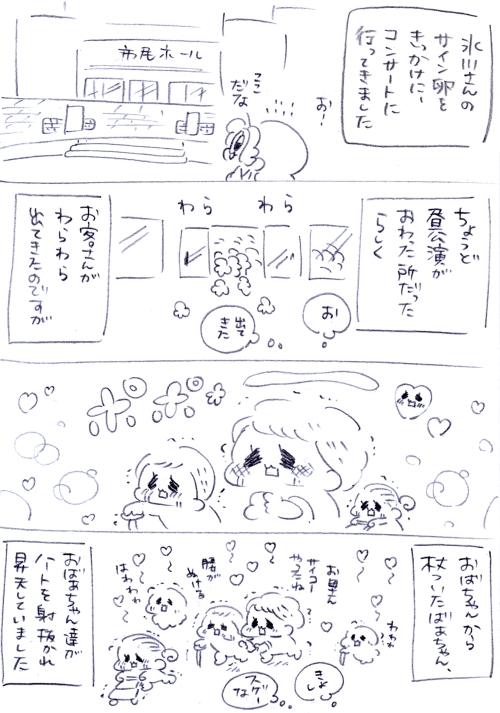 氷川さんの
サイン卵を
きっかけに
コンサートに
行ってきました
お!
ここ
だな
市尾ホール
ちょうど
昼公演が
おわった所だった
らしく
お
出て
きた
わら
わら
お客さんが
わらわら
出てきたのですが
おばちゃんから
杖ついたばあちゃん、
わわわ
お母さん
サイコー
やったね
腰が
ぬける
はわわわ
きよし
スゲー
な
おばあちゃん達が
ハートを射抜かれ
昇天していました